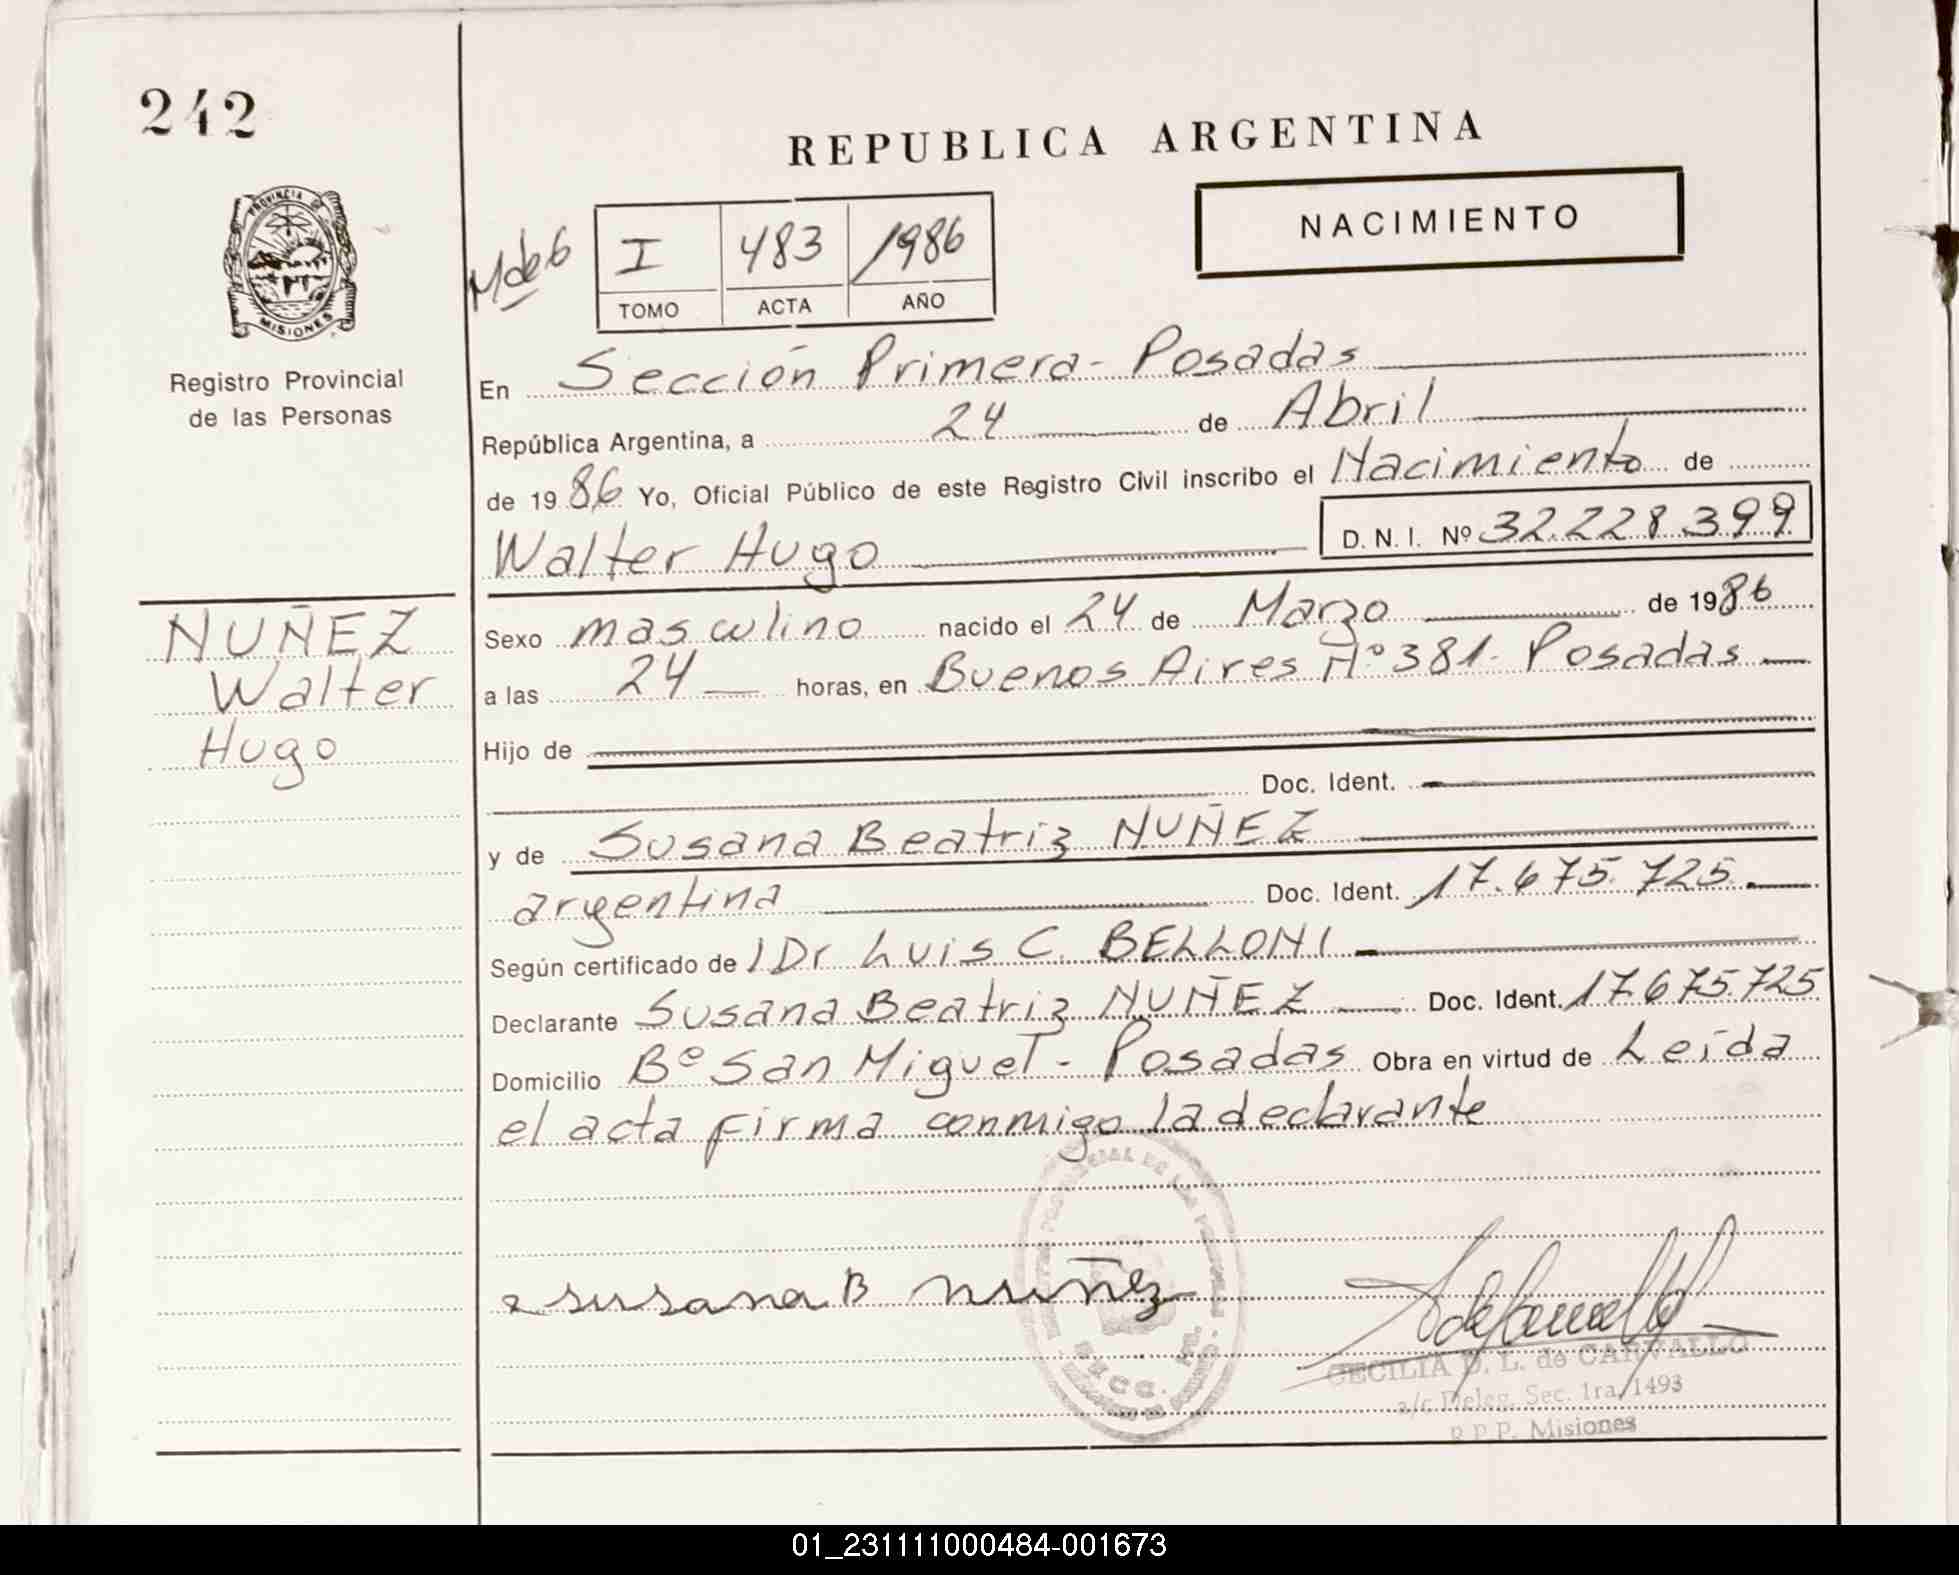 242
REPUBLICA ARGENTINA
PROVINCIA DE
MISIONES
Registro Provincial
de las Personas
NACIMIENTO
I 483 1986
TOMO ACTA AÑO
En Sección Primera - Posadas
República Argentina, a 24 de Abril
de 19 86 Yo, Oficial Público de este Registro Civil inscribo el Nacimiento de
Walter Hugo D. N. I. Nº 32.228.399
NUÑEZ
Walter
Hugo
Sexo masculino nacido el 24 de Marzo de 1986
a las 24 horas, en Buenos Aires Nº 381 - Posadas
Hijo de
Doc. Ident.
y de Susana Beatriz NUÑEZ
argentina Doc. Ident. 17.675.725
Según certificado de Dr Luis C. BELLONI
Declarante Susana Beatriz NUÑEZ Doc. Ident. 17.675.725
Domicilio Bº San Miguel - Posadas Obra en virtud de Leída
el acta firma conmigo la declarante
Susana B Nuñez
CECILIA D. L. de CARVALLO
a/c Deleg. Sec. 1ra/1493
R.P.P. Misiones
01_231111000484-001673